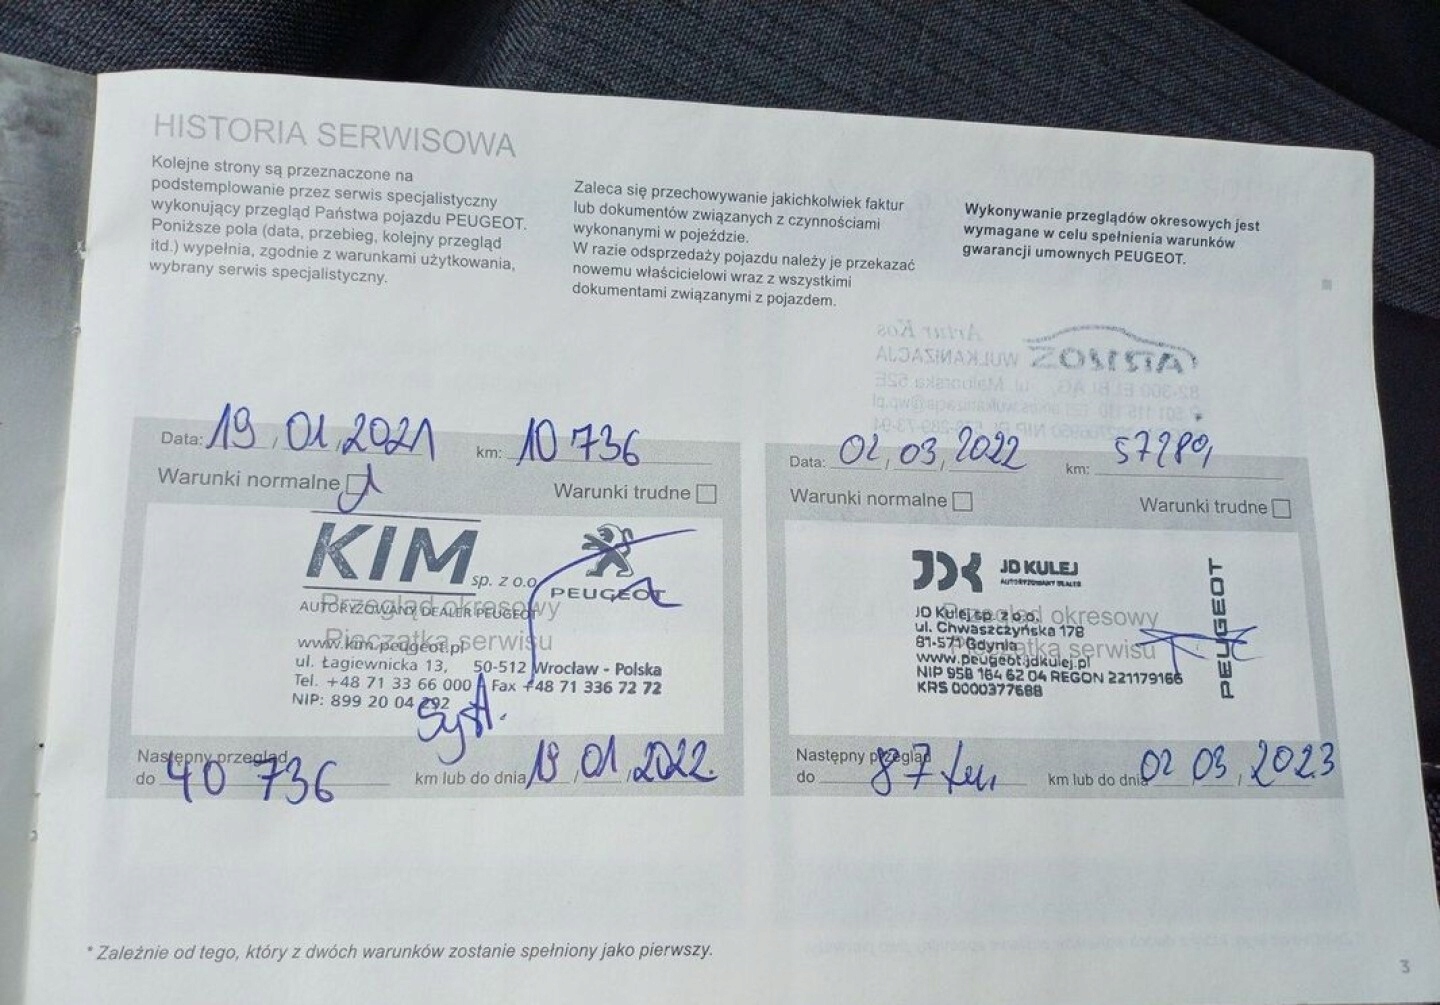 HISTORIA SERWISOWA
Kolejne strony są przeznaczone na
podstemplowanie przez serwis specjalistyczny
wykonujący przegląd Państwa pojazdu PEUGEOT.
Poniższe pola (data, przebieg, kolejny przegląd
itd.) wypełnia, zgodnie z warunkami użytkowania,
wybrany serwis specjalistyczny.
Zaleca się przechowywanie jakichkolwiek faktur
lub dokumentów związanych z czynnościami
wykonanymi w pojeździe.
W razie odsprzedaży pojazdu należy je przekazać
nowemu właścicielowi wraz z wszystkimi
dokumentami związanymi z pojazdem.
Wykonywanie przeglądów okresowych jest
wymagane w celu spełnienia warunków
gwarancji umownych PEUGEOT.
Data: 19, 01, 2021 km: 10 736
Warunki normalne Warunki trudne
KIM sp. z o.o.
PEUGEOT
AUTORYZOWANY DEALER PEUGEOT
Przegląd okresowy
www.kim.peugeot.pl
Pieczątka serwisu
ul. Łagiewnicka 13, 50-512 Wrocław - Polska
Tel. +48 71 33 66 000 Fax +48 71 336 72 72
NIP: 899 20 04 292
Następny przegląd
do 40 736 km lub do dnia 19, 01, 2022.
Data: 02, 03, 2022 km: 57289
Warunki normalne Warunki trudne
JD KULEJ
AUTORYZOWANY DEALER
PEUGEOT
JD Kulej sp. z o.o.
Przegląd okresowy
ul. Chwaszczyńska 178
81-571 Gdynia
Pieczątka serwisu
www.peugeot.jdkulej.pl
NIP 958 164 62 04 REGON 221179166
KRS 0000377688
Następny przegląd
do 87 km lub do dnia 02 03, 2023
* Zależnie od tego, który z dwóch warunków zostanie spełniony jako pierwszy.
3